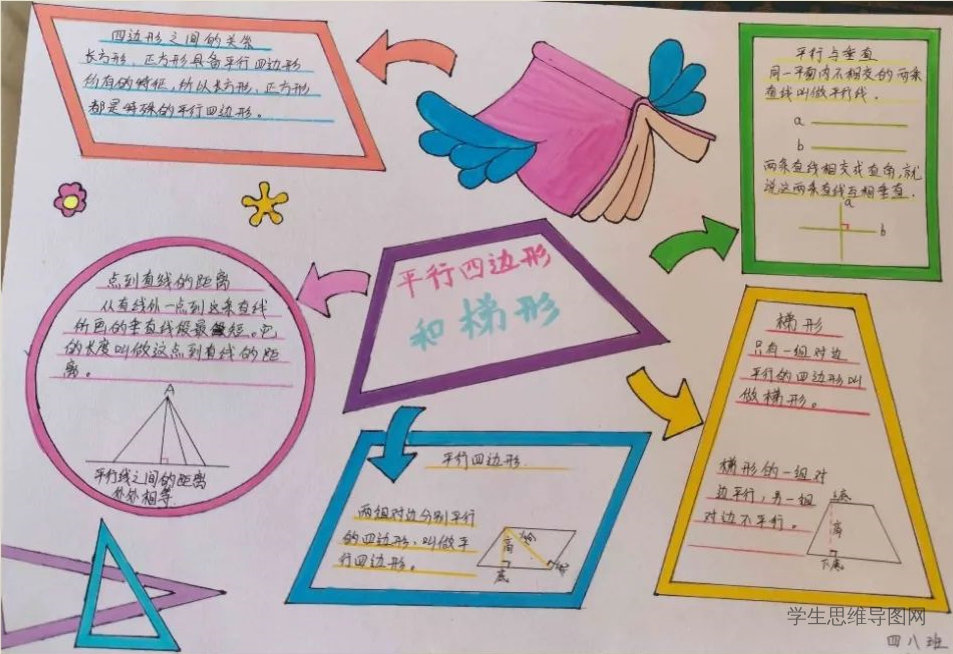 四边形之间的关系
长方形、正方形具备平行四边形
所有的特征，所以长方形、正方形
都是特殊的平行四边形。
平行与垂直
同一平面内不相交的两条
直线叫做平行线．
a
b
两条直线相交成直角，就
说这两条直线互相垂直．
a
b
平行四边形
和梯形
点到直线的距离
从直线外一点到这条直线
所画的垂直线段最短。它
的长度叫做这点到直线的距
离。
A
平行线之间的距离
处处相等
平行四边形．
两组对边分别平行
的四边形，叫做平
行四边形。
高
底
梯形
只有一组对边
平行的四边形叫
做梯形。
梯形的一组对
边平行，另一组
对边不平行。
上底
高
下底
学生思维导图网
四八班